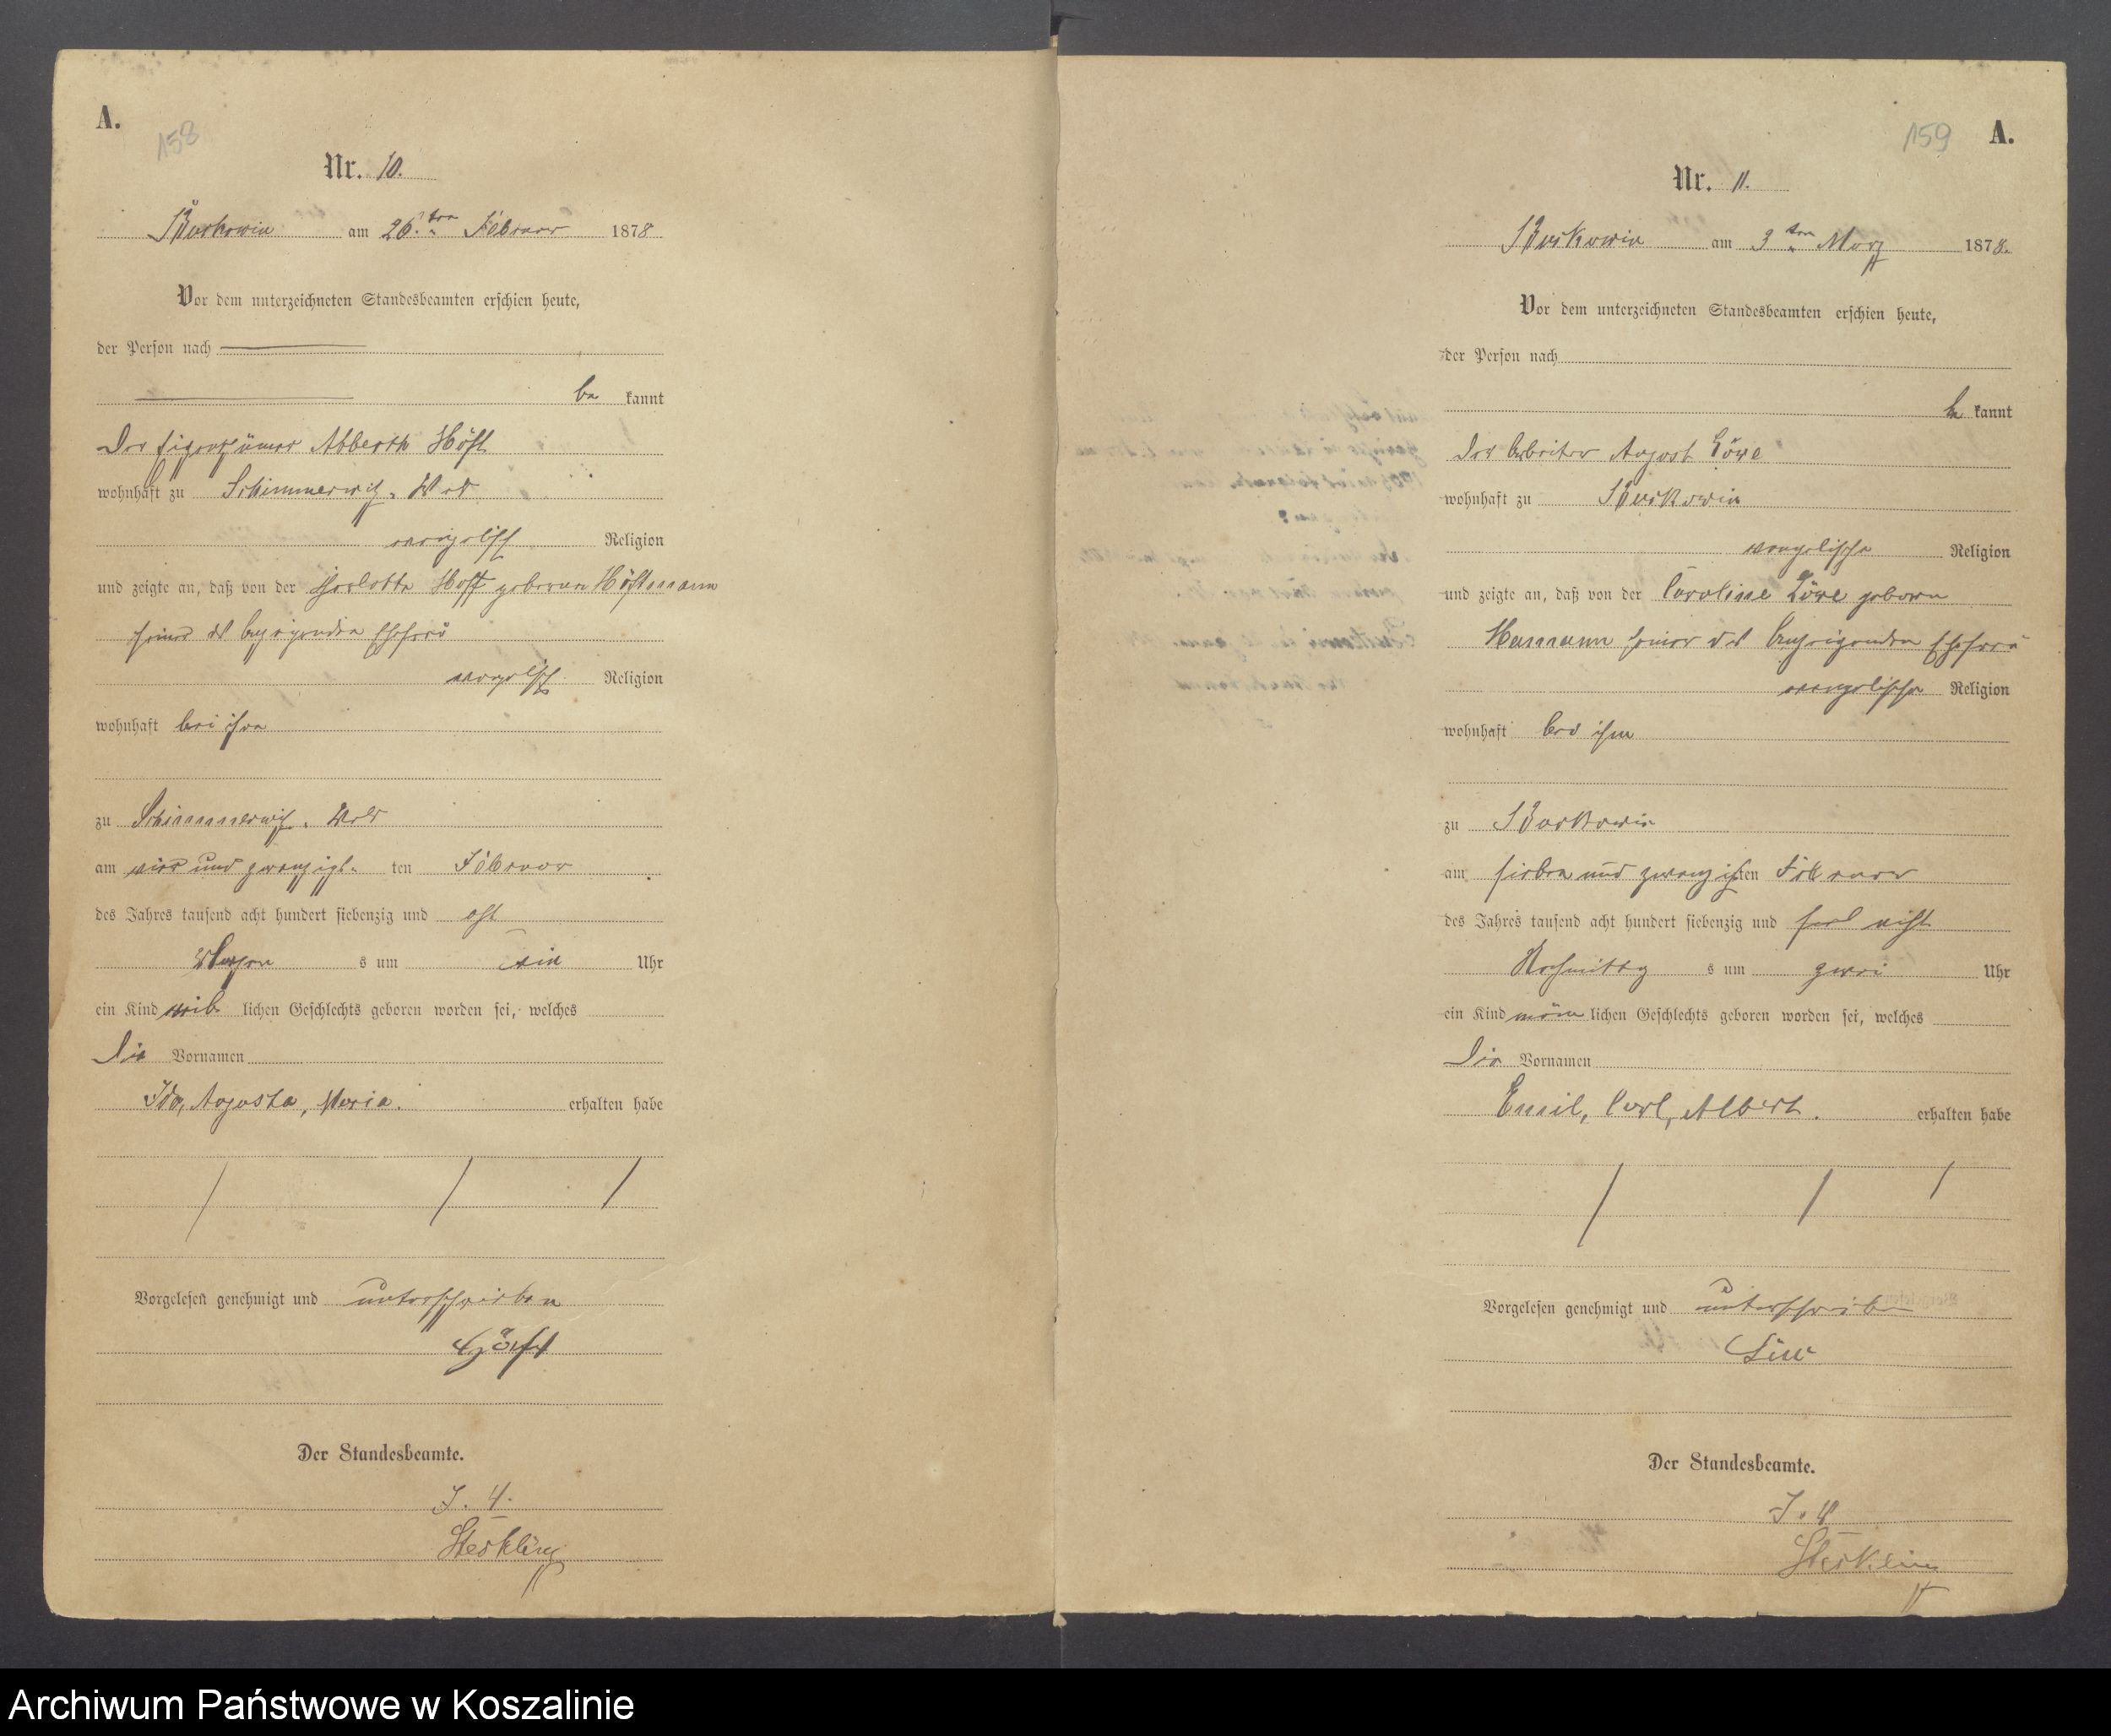 A.
158
Nr. 10.
Buckowin am 26.ten Februar 1878
Vor dem unterzeichneten Standesbeamten erschien heute,
der Person nach
be kannt
Der Eigenthümer Höft
wohnhaft zu Schimmerwitz
evangelisch Religion
und zeigte an, daß von der Höft geboren Höftmann
seiner Ehefrau
evangelisch Religion
wohnhaft bei ihm
zu Schimmerwitz
am vier und zwanzigst ten Februar
des Jahres tausend acht hundert siebenzig und acht
Morgen s um ein Uhr
ein Kind weib lichen Geschlechts geboren worden sei, welches
die Vornamen
Ida, Augusta, Maria. erhalten habe
Vorgelesen genehmigt und unterschrieben
Höft
Der Standesbeamte.
Steckling
159
A.
Nr. 11.
Buckowin am 3ten März 1878.
Vor dem unterzeichneten Standesbeamten erschien heute,
der Person nach
be kannt
Der Arbeiter August Löwe
wohnhaft zu Buckowin
evangelische Religion
und zeigte an, daß von der Caroline Löwe geboren
Hamann seiner Ehefrau
evangelische Religion
wohnhaft bei ihm
zu Buckowin
am sieben und zwanzigsten Februar
des Jahres tausend acht hundert siebenzig und acht
Nachmittag s um zwei Uhr
ein Kind män lichen Geschlechts geboren worden sei, welches
die Vornamen
Emil, Carl, Albert. erhalten habe
Vorgelesen genehmigt und unterschrieben
Der Standesbeamte.
Steckling
Archiwum Państwowe w Koszalinie